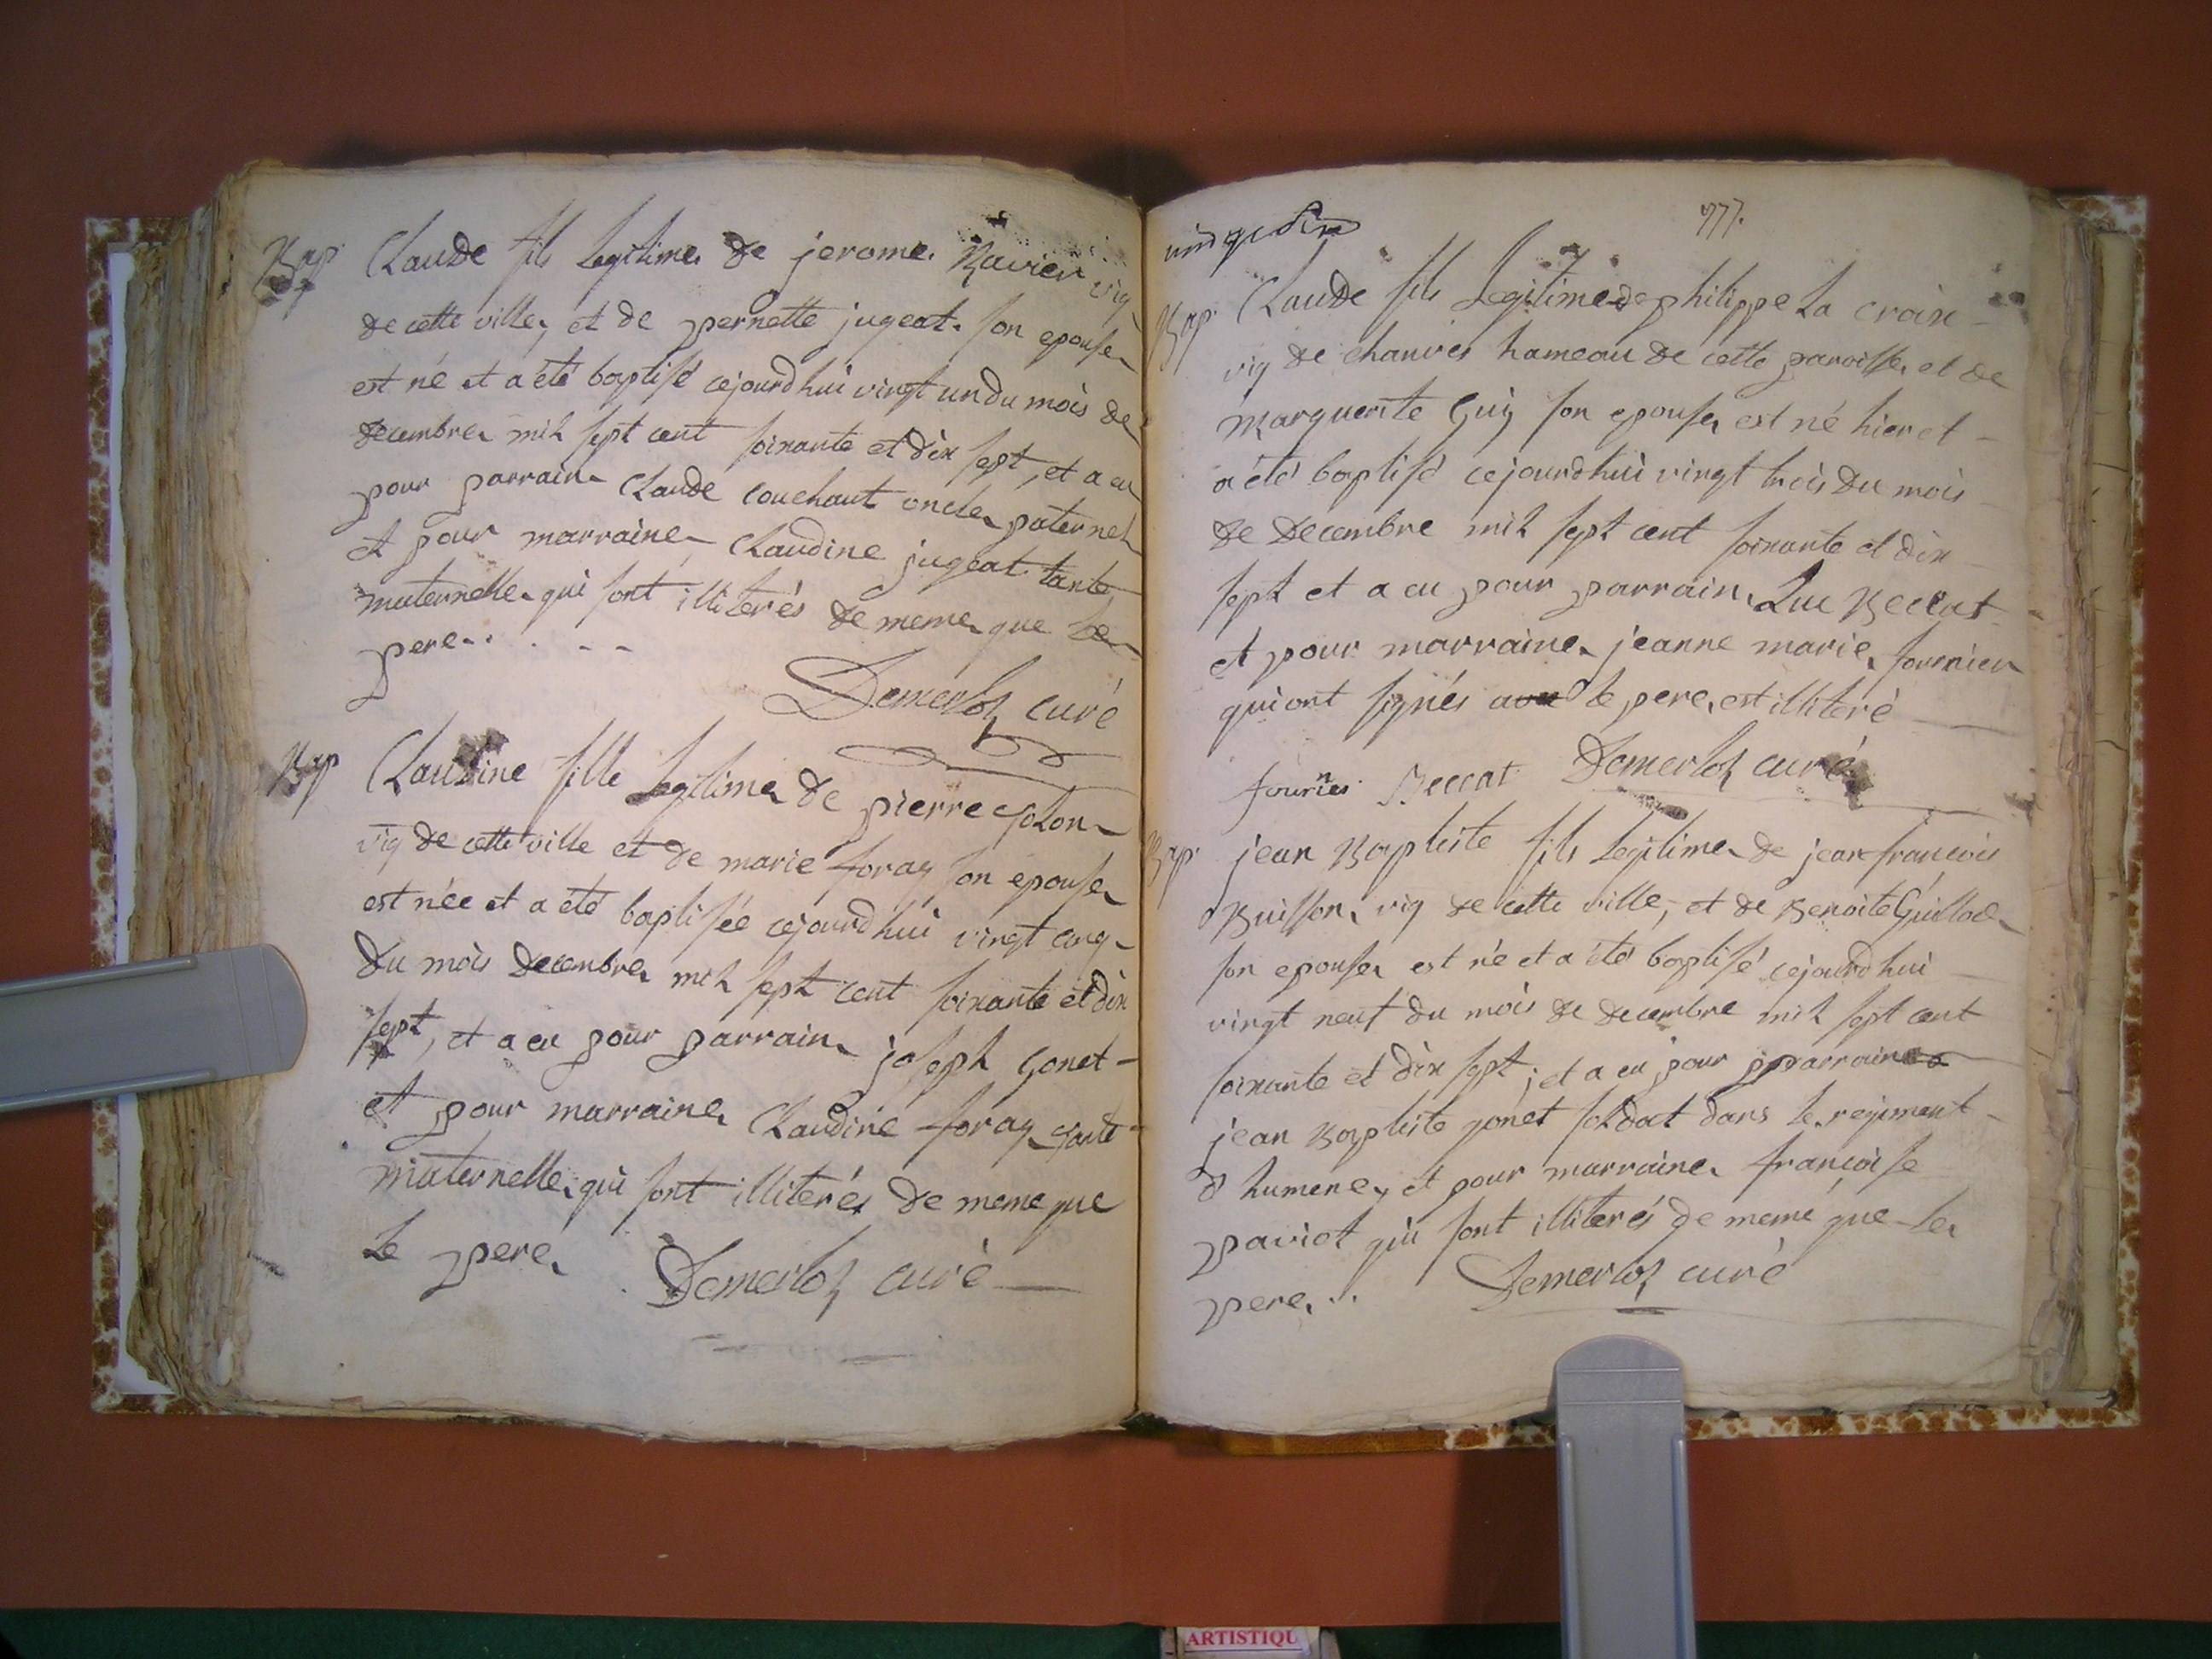 Bap Claude fils legitime de jerome Ravier vig
de cette ville, et de pernette jugeat son epouse
est né et a été baptisé cejourdhui vingt un du mois de
decembre mil sept cent soixante et dix sept, et a eu
pour parrain Claude couchaut oncle paternel
et pour marraine Claudine jugeat tante
maternelle qui sont illiterés de meme que le
pere
Demerloz curé
Bap Claudine fille legitime de pierre
vig de cette ville et de marie foray son epouse
est née et a été baptisée cejourdhui vingt cinq
du mois decembre mil sept cent soixante et dix
sept, et a eu pour parrain joseph gonet
et pour marraine Claudine foray tante
maternelle qui sont illiterés de meme que
le pere Demerloz curé
777.
Bap. Claude fils legitime de philippe la croix
vig de chanves hameau de cette paroisse et de
Marguerite Guy son epouse est né hier et
a été baptisé cejourdhui vingt trois du mois
de decembre mil sept cent soixante et dix
sept et a eu pour parrain Luc Beccat
et pour marraine jeanne marie fournier
qui ont signés le pere est illiteré
fournier Beccat Demerloz curé
Bap. jean Baptiste fils legitime de jean françois
Buisson, vig de cette ville, et de Benoite Guillod
son epouse est né et a été baptisé cejourdhui
vingt neuf du mois de decembre mil sept cent
soixante et dix sept, et a eu pour pparrain
jean Baptiste gonet soldat dans le regiment
d humene, et pour marraine françoise
paviot qui sont illiterés de meme que le
pere Demerloz curé
ARTISTIQU